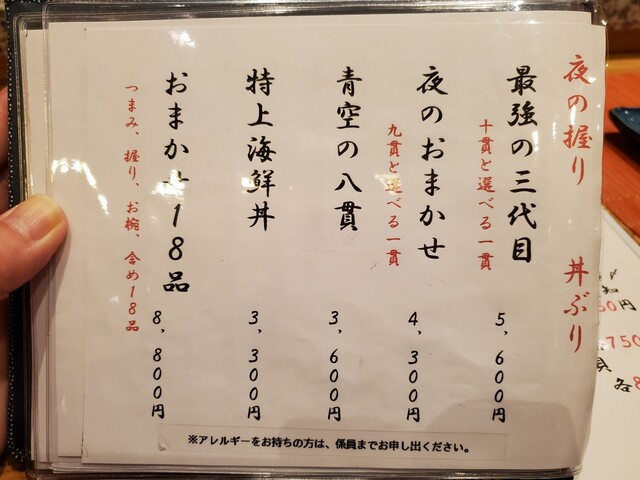 夜の握り 丼ぶり
最強の三代目 5,600円
十貫と選べる一貫
夜のおまかせ 4,300円
九貫と選べる一貫
青空の八貫 3,600円
特上海鮮丼 3,300円
おまかせ18品 8,800円
つまみ、握り、お椀、含め18品
※アレルギーをお持ちの方は、係員までお申し出ください。